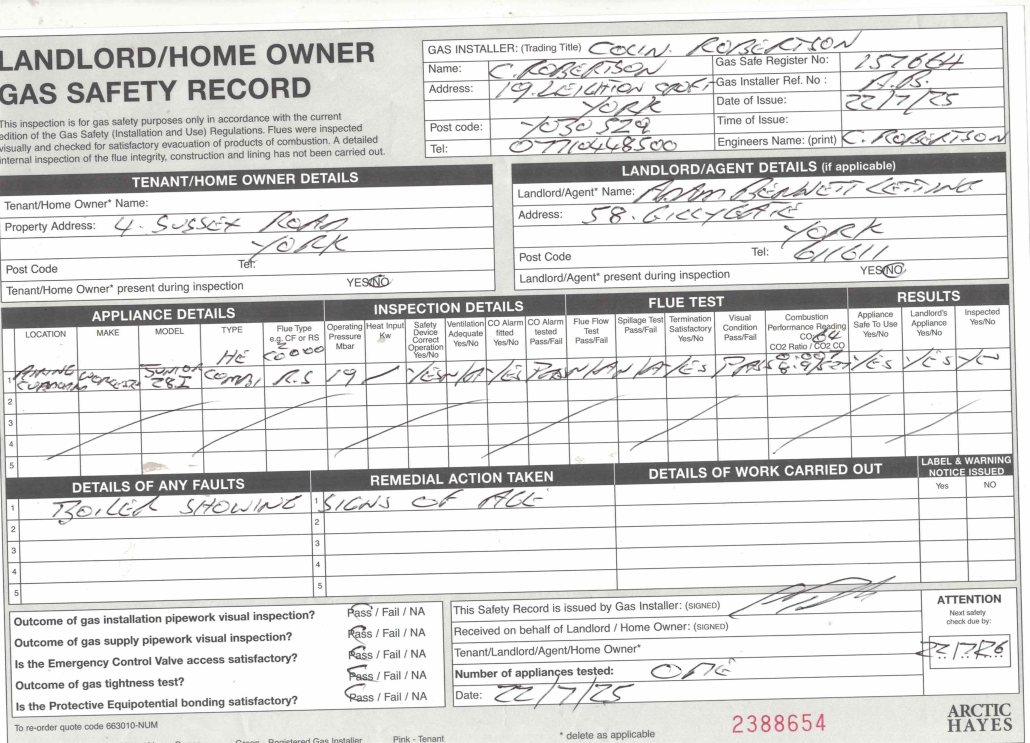 LANDLORD/HOME OWNER
GAS SAFETY RECORD
This inspection is for gas safety purposes only in accordance with the current
edition of the Gas Safety (Installation and Use) Regulations. Flues were inspected
visually and checked for satisfactory evacuation of products of combustion. A detailed
internal inspection of the flue integrity, construction and lining has not been carried out.
GAS INSTALLER: (Trading Title) COLIN. ROBERTSON
Name: C. ROBERTSON Gas Safe Register No: 157664
Address: 19. LEIGHTON CROFT Gas Installer Ref. No :
YORK Date of Issue: 22/7/25
Post code: YO30 Time of Issue:
Tel: 07710448500 Engineers Name: (print) C. ROBERTSON
TENANT/HOME OWNER DETAILS
Tenant/Home Owner* Name:
Property Address: 4. SUSSEX ROAD
YORK
Post Code Tel:
Tenant/Home Owner* present during inspection YES/NO
LANDLORD/AGENT DETAILS (if applicable)
Landlord/Agent* Name: ADAM BENNETT LETTING
Address: 58. GILLYGATE
YORK
Post Code Tel: 611611
Landlord/Agent* present during inspection YES/NO
APPLIANCE DETAILS INSPECTION DETAILS FLUE TEST RESULTS
LOCATION MAKE MODEL TYPE Flue Type e.g. CF or RS Operating Pressure Mbar Heat Input Kw Safety Device Correct Operation Yes/No Ventilation Adequate Yes/No CO Alarm fitted Yes/No CO Alarm tested Pass/Fail Flue Flow Test Pass/Fail Spillage Test Pass/Fail Termination Satisfactory Yes/No Visual Condition Pass/Fail Combustion Performance Reading CO2 Ratio / CO2 CO Appliance Safe To Use Yes/No Landlord's Appliance Yes/No Inspected Yes/No
1 WORCESTER JUNIOR 28I HE COMBI R.S 19 / YES N/A YES PASS N/A N/A YES PASS YES YES YES
2
3
4
5
DETAILS OF ANY FAULTS REMEDIAL ACTION TAKEN DETAILS OF WORK CARRIED OUT LABEL & WARNING NOTICE ISSUED
Yes NO
1 BOILER SHOWING 1 SIGNS OF AGE
2 2
3 3
4 4
5 5
Outcome of gas installation pipework visual inspection? Pass / Fail / NA
Outcome of gas supply pipework visual inspection? Pass / Fail / NA
Is the Emergency Control Valve access satisfactory? Pass / Fail / NA
Outcome of gas tightness test? Pass / Fail / NA
Is the Protective Equipotential bonding satisfactory? Pass / Fail / NA
This Safety Record is issued by Gas Installer: (SIGNED)
Received on behalf of Landlord / Home Owner: (SIGNED)
Tenant/Landlord/Agent/Home Owner*
Number of appliances tested: ONE
Date: 22/7/25
ATTENTION
Next safety
check due by:
22/7/26
To re-order quote code 663010-NUM
Green - Registered Gas Installer Pink - Tenant
* delete as applicable
2388654
ARCTIC
HAYES